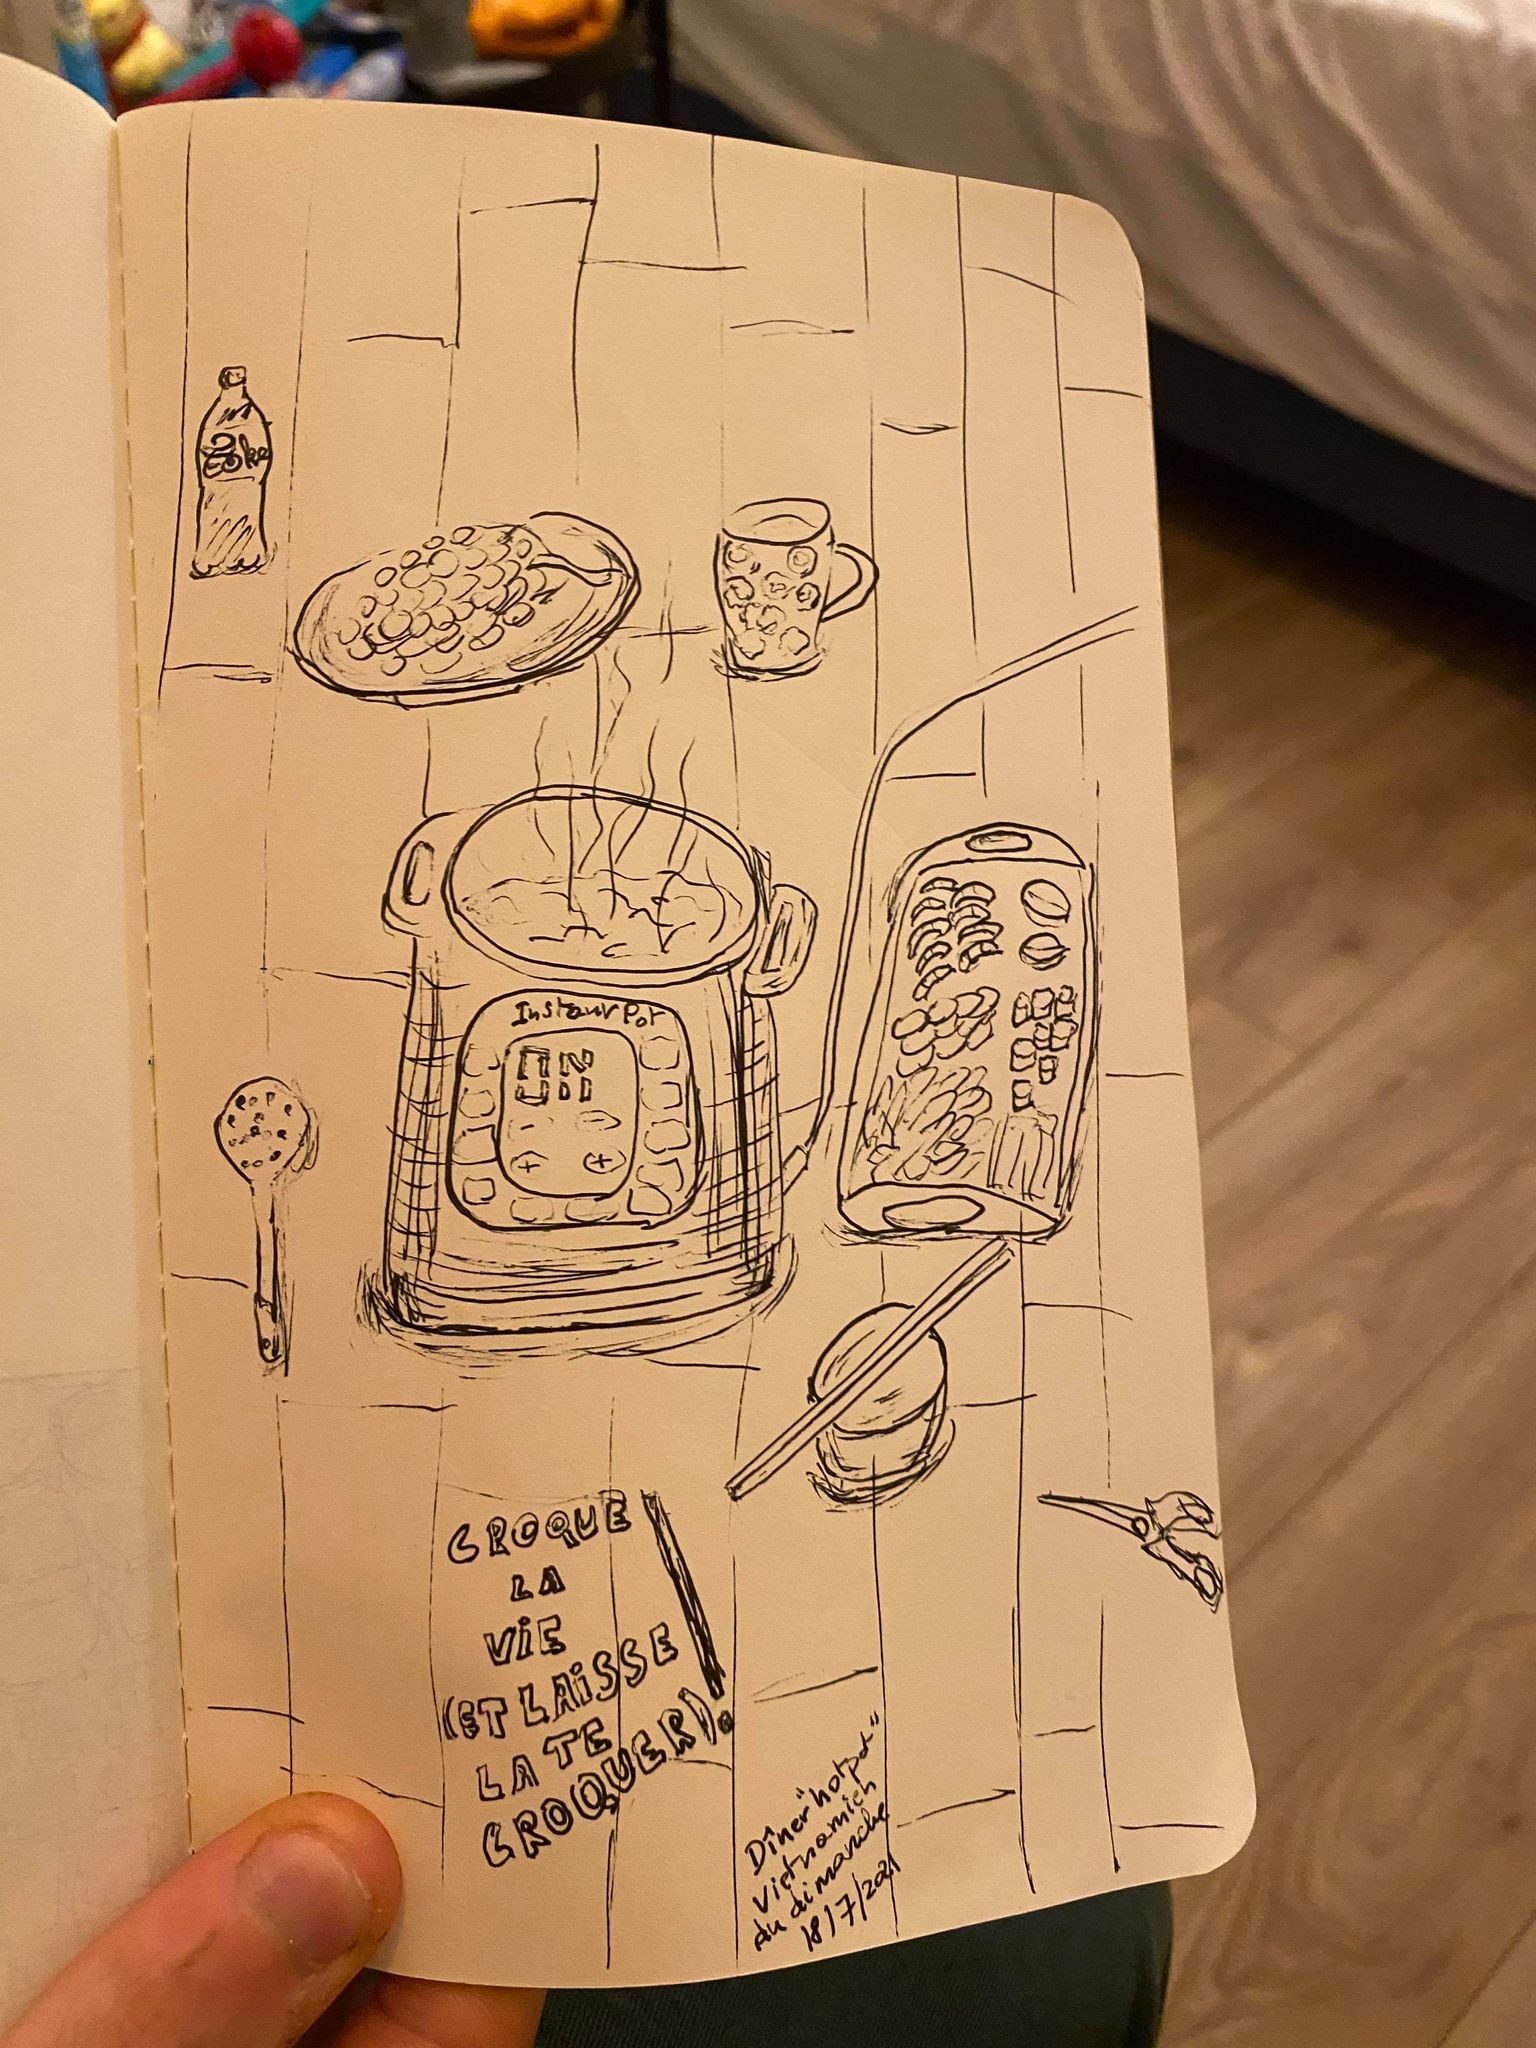 Coke
Instant Pot
ON
CROQUE
LA
VIE
(ET LAISSE
LA TE
CROQUER).
Dîner "hotpot"
Vietnamien
du dimanche
18/7/2021